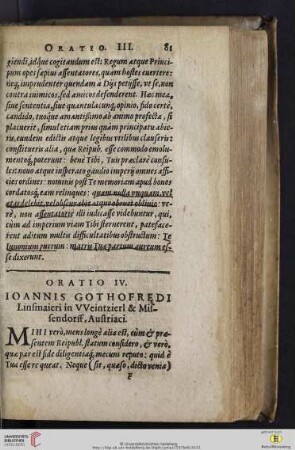 ORATIO. III. 81
giendi, idque cogitandum est: Regum atque Princi-
pum opes sæpius assentatores, quàm hostes euertere:
neq, imprudenter quendam à Dijs petijsse, vt se, non
contra inimicos, sed amicos defenderent. Hac mea,
siue sententia, siue quantulacunq, opinio, fido certè,
candido, tuoque amantissimo ab animo profecta, si
placuerit, simul etiam prius quàm principatu abie-
ris, eundem edictis atque legibus vetibus clausêris:
constitueris alia, quæ Reipub. esse commodo emolu-
mentoq, poterunt: benè Tibi, Tuis præclarè consu-
les: nouo atque insperato gaudio imperij omnes affi-
cies ordines: nominis post Te memoriam apud bonos
cordatosq, eam relinques: quam nulla vnquam, vel
ætas delebit, vel obscurabit atque obruet obliuio: ve-
rè, non assentatoriè illi iudicasse videbuntur, qui,
cùm ad imperium viam Tibi sternerent, patefacе-
rent aditum multis difficultatibus obstructum: Te
luminium patrum: matris Dua partum auream es-
se dixerunt.
ORATIO IV.
IOANNIS GOTHOFREDI
Linsmaieri in VVeintzierl & Mil-
sendorff, Austriaci.
MIHI verò, mens longè alia est, cùm & præ-
sentem Reipubl. statum considero, & verò,
qua par est fide diligentiaq, mecum reputo: quid è
Tua esse re queat. Neque (sit, quæso, dicto venia)
F
© Universitätsbibliothek Heidelberg